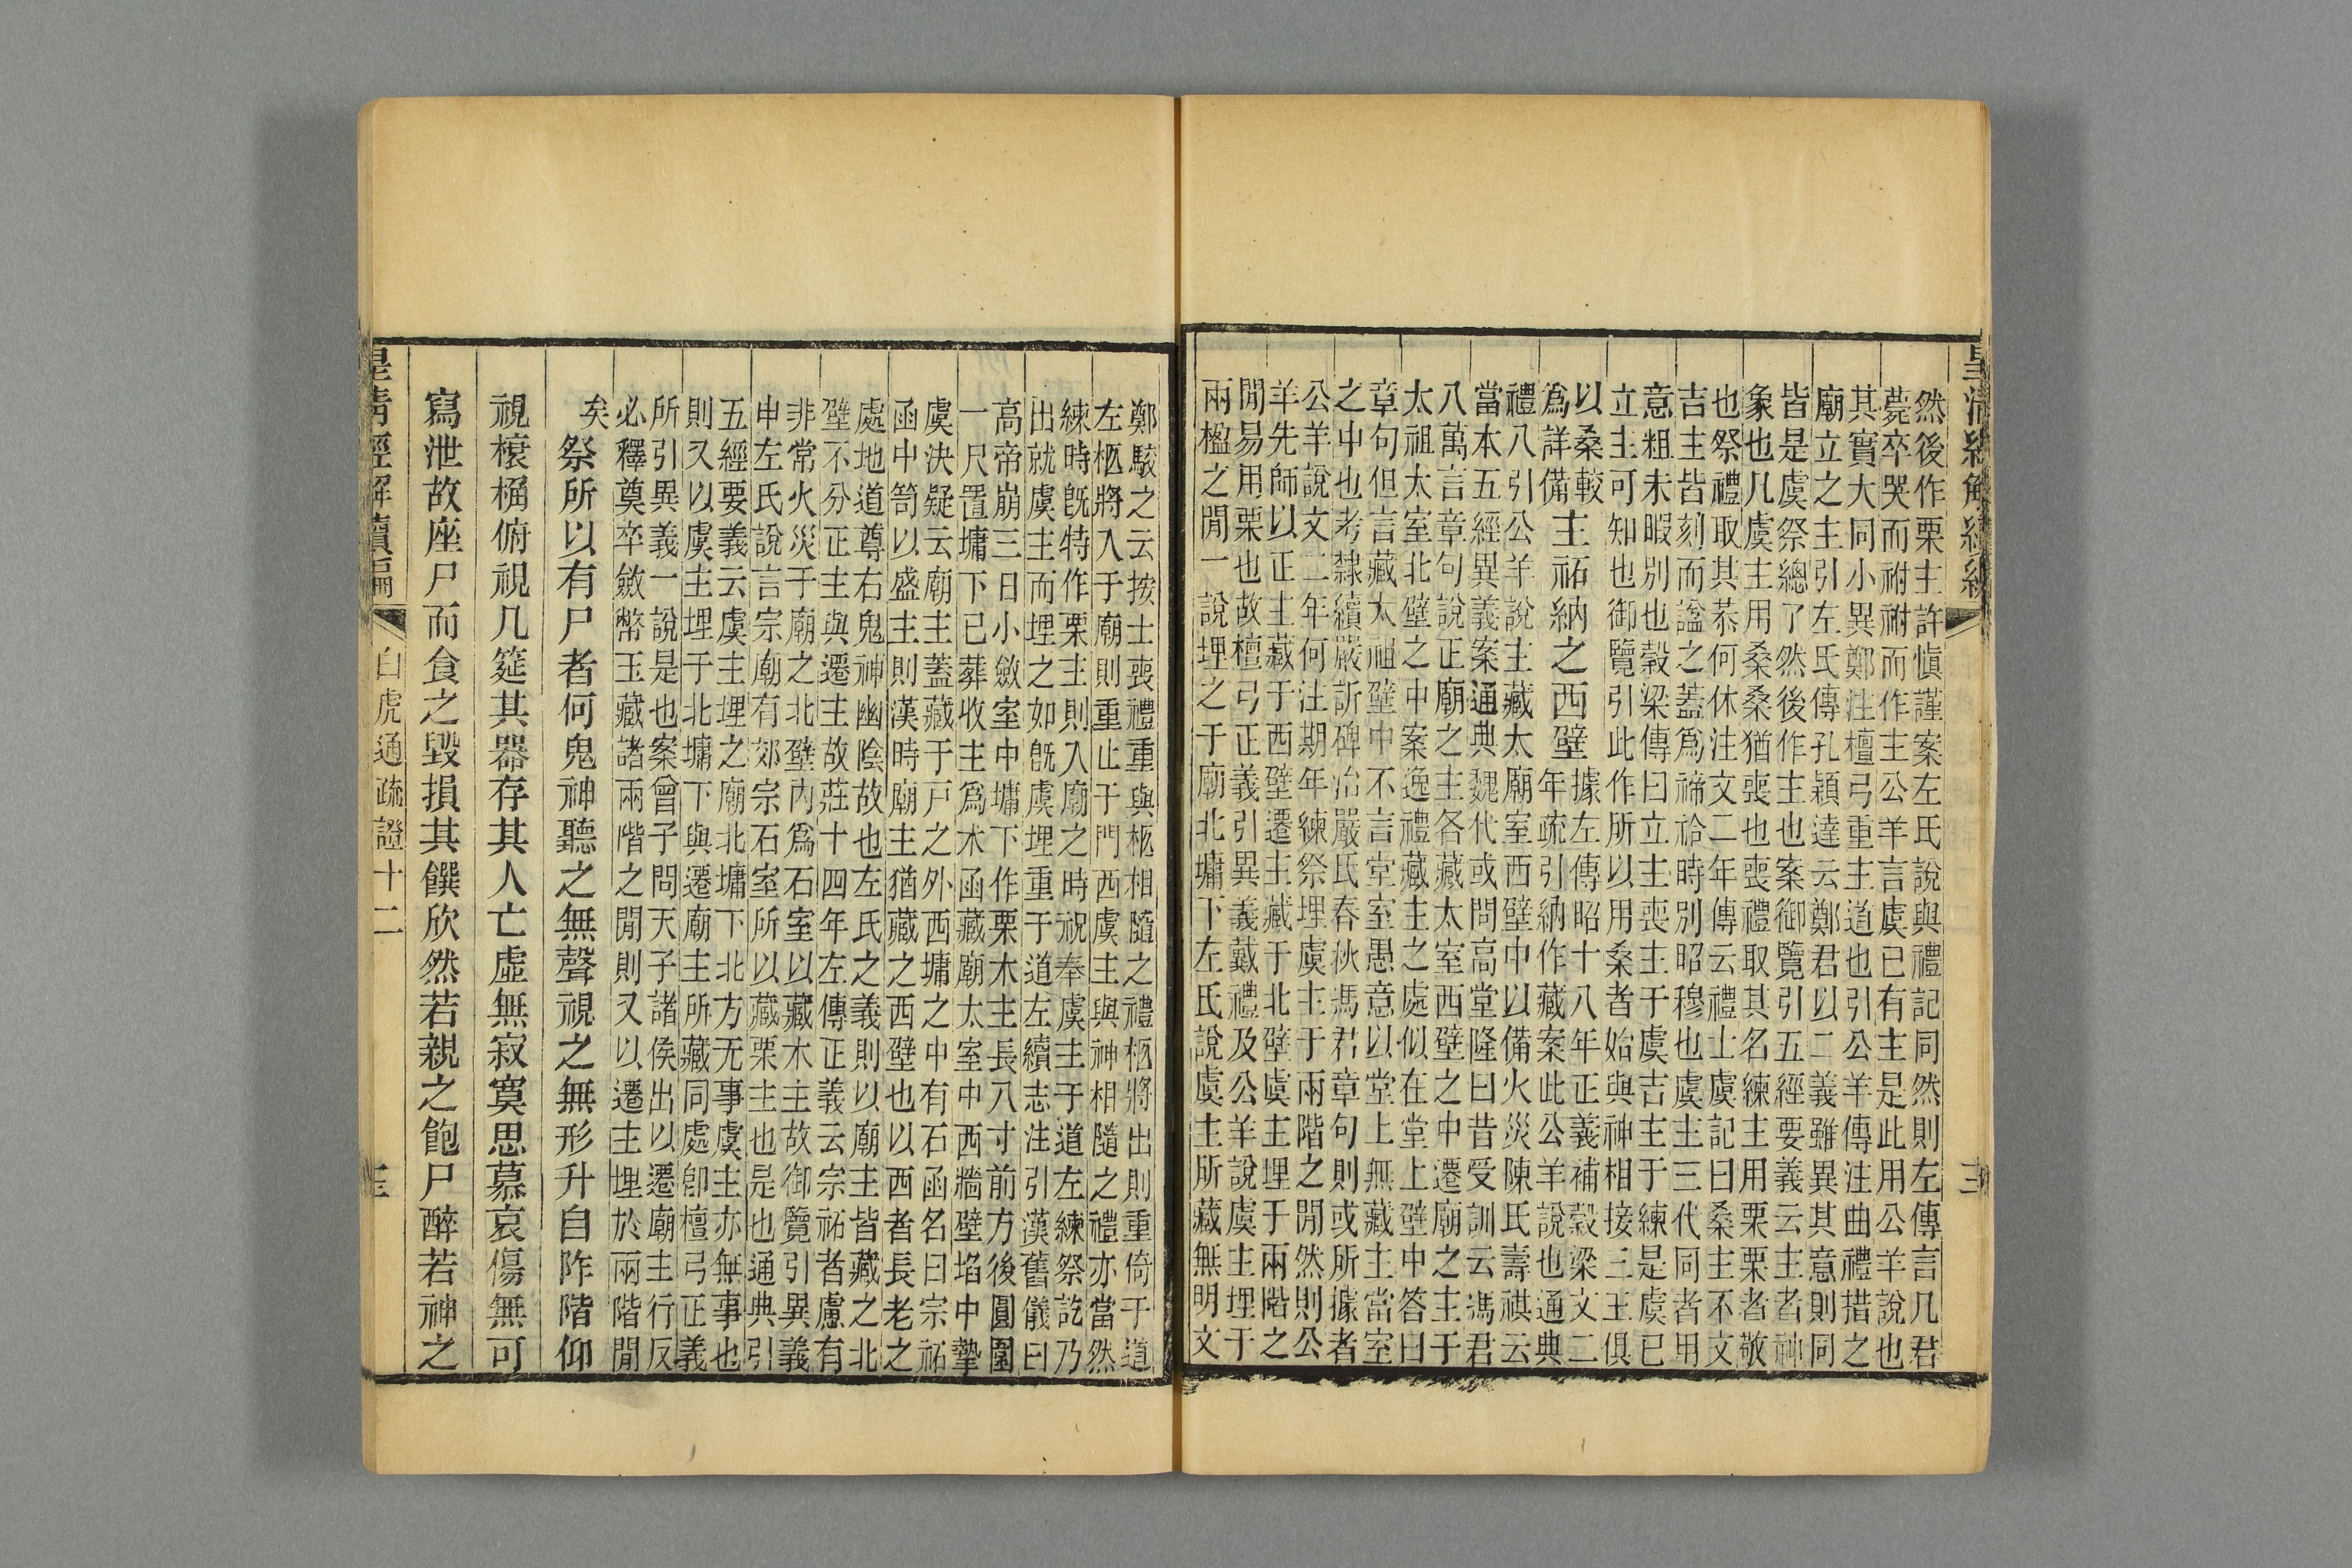 然後作栗主許慎謹案左氏說與禮記同然則左傳言凡君
薨卒哭而祔祔而作主公羊言虞已有主是此用公羊說也
其實大同小異鄭注檀弓重主道也引公羊傳注曲禮措之
廟立之主引左氏傳孔穎達云鄭君以二義雖異其意則同
皆是虞祭總了然後作主也案御覽引五經要義云主者神
象也凡虞主用桑桑猶喪也喪禮取其名練主用栗栗者敬
也祭禮取其恭何休注文二年傳云禮士虞記曰桑主不文
吉主皆刻而諡之蓋為禘祫時別昭穆也虞主三代同者用
意粗未暇別也穀梁傳曰立主喪主于虞吉主于練是虞已
立主可知也御覽引此作所以用桑者始與神相接三王俱
以桑較
為詳備
主祏納之西壁
據左傳昭十八年正義補穀梁文二
年疏引納作藏案此公羊說也通典
禮八引公羊說主藏太廟室西壁中以備火災陳氏壽祺云
當本五經異義案通典魏代或問高堂隆曰昔受訓云馮君
八萬言章句說正廟之主各藏太室西壁之中遷廟之主于
太祖太室北壁之中案逸禮藏主之處似在堂上壁中答曰
章句但言藏太祖壁中不言堂室愚意以堂上無藏主當室
之中也考隸續嚴訢碑治嚴氏春秋馮君章句則或所據者
公羊說文二年何注期年練祭埋虞主于兩階之閒然則公
羊先師以正主藏于西壁遷主藏于北壁虞主埋于兩階之
閒易用栗也故檀弓正義引異義戴禮及公羊說虞主埋于
兩楹之閒一說埋之于廟北墉下左氏說虞主所藏無明文
皇清經解續編
三
鄭駮之云按士喪禮重與柩相隨之禮柩將出則重倚于道
左柩將入于廟則重止于門西虞主與神相隨之禮亦當然
練時既特作栗主則入廟之時祝奉虞主于道左練祭訖乃
出就虞主而埋之如既虞埋重于道左續志注引漢舊儀曰
高帝崩三日小斂室中墉下作栗木主長八寸前方後圓圍
一尺置墉下已葬收主為木函藏廟太室中西牆壁埳中摯
虞決疑云廟主蓋藏于戶之外西墉之中有石函名曰宗祏
函中笥以盛主則漢時廟主猶藏之西壁也以西者長老之
處地道尊右鬼神幽陰故也左氏之義則以廟主皆藏之北
壁不分正主與遷主故莊十四年左傳正義云宗祏者慮有
非常火災于廟之北壁內為石室以藏木主故御覽引異義
申左氏說言宗廟有郊宗石室所以藏栗主也是也通典引
五經要義云虞主埋之廟北墉下北方无事虞主亦無事也
則又以虞主埋于北墉下與遷廟主所藏同處卽檀弓正義
所引異義一說是也案曾子問天子諸侯出以遷廟主行反
必釋奠卒斂幣玉藏諸兩階之閒則又以遷主埋於兩階閒
矣
祭所以有尸者何鬼神聽之無聲視之無形升自阼階仰
視榱桷俯視几筵其器存其人亡虛無寂寞思慕哀傷無可
寫泄故座尸而食之毀損其饌欣然若親之飽尸醉若神之
皇清經解續編
白虎通疏證十二
三